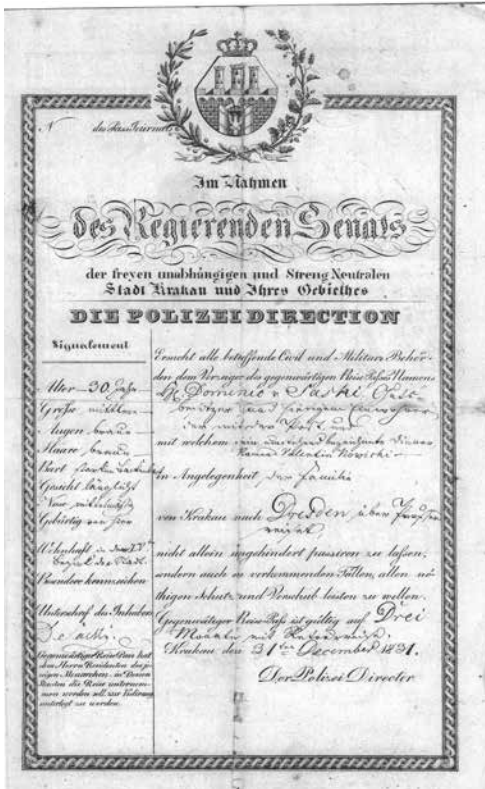 N des Pass Journals
Im Nahmen
des Regierenden Senats
der freyen unabhängigen und Streng Neutralen
Stadt Krakau und Ihres Gebiethes
DIE POLIZEIDIRECTION
Signalement
Alter 30 Jahr
Größe mittler
Augen braun
Haare braun
Bart
Gesicht länglicht
Nase
Gebürtig von hier
Wohnhaft in dem IV
Bezirk der Stadt
Besondere kennzeichen
Unterschrift des Inhabers
Gegenwärtiger Reise Pass hat
den Herrn Residenten desje-
nigen Monarchen, in Dessen
Staaten die Reise unternom-
men werden soll, zur Vidirung
unterlegt zu werden.
Ersucht alle betreffende Civil und Militair Behör-
den dem Vorzeiger des gegenwärtigen Reise Passes Namens
H. Dominic v
der mit der Post und
mit welchem sein Diener
Namens Valentin Nowicki
in Angelegenheit der Familie
von Krakau nach Dresden, über
reiset,
nicht allein ungehindert passiren zu lassen,
sondern auch in vorkommenden Fällen, allen nö-
thigen Schutz und Vorschub leisten zu wollen.
Gegenwärtiger Reise Pass ist gültig auf Drei
Monate mit
Krakau den 31ten December 1831.
Der Polizei Director